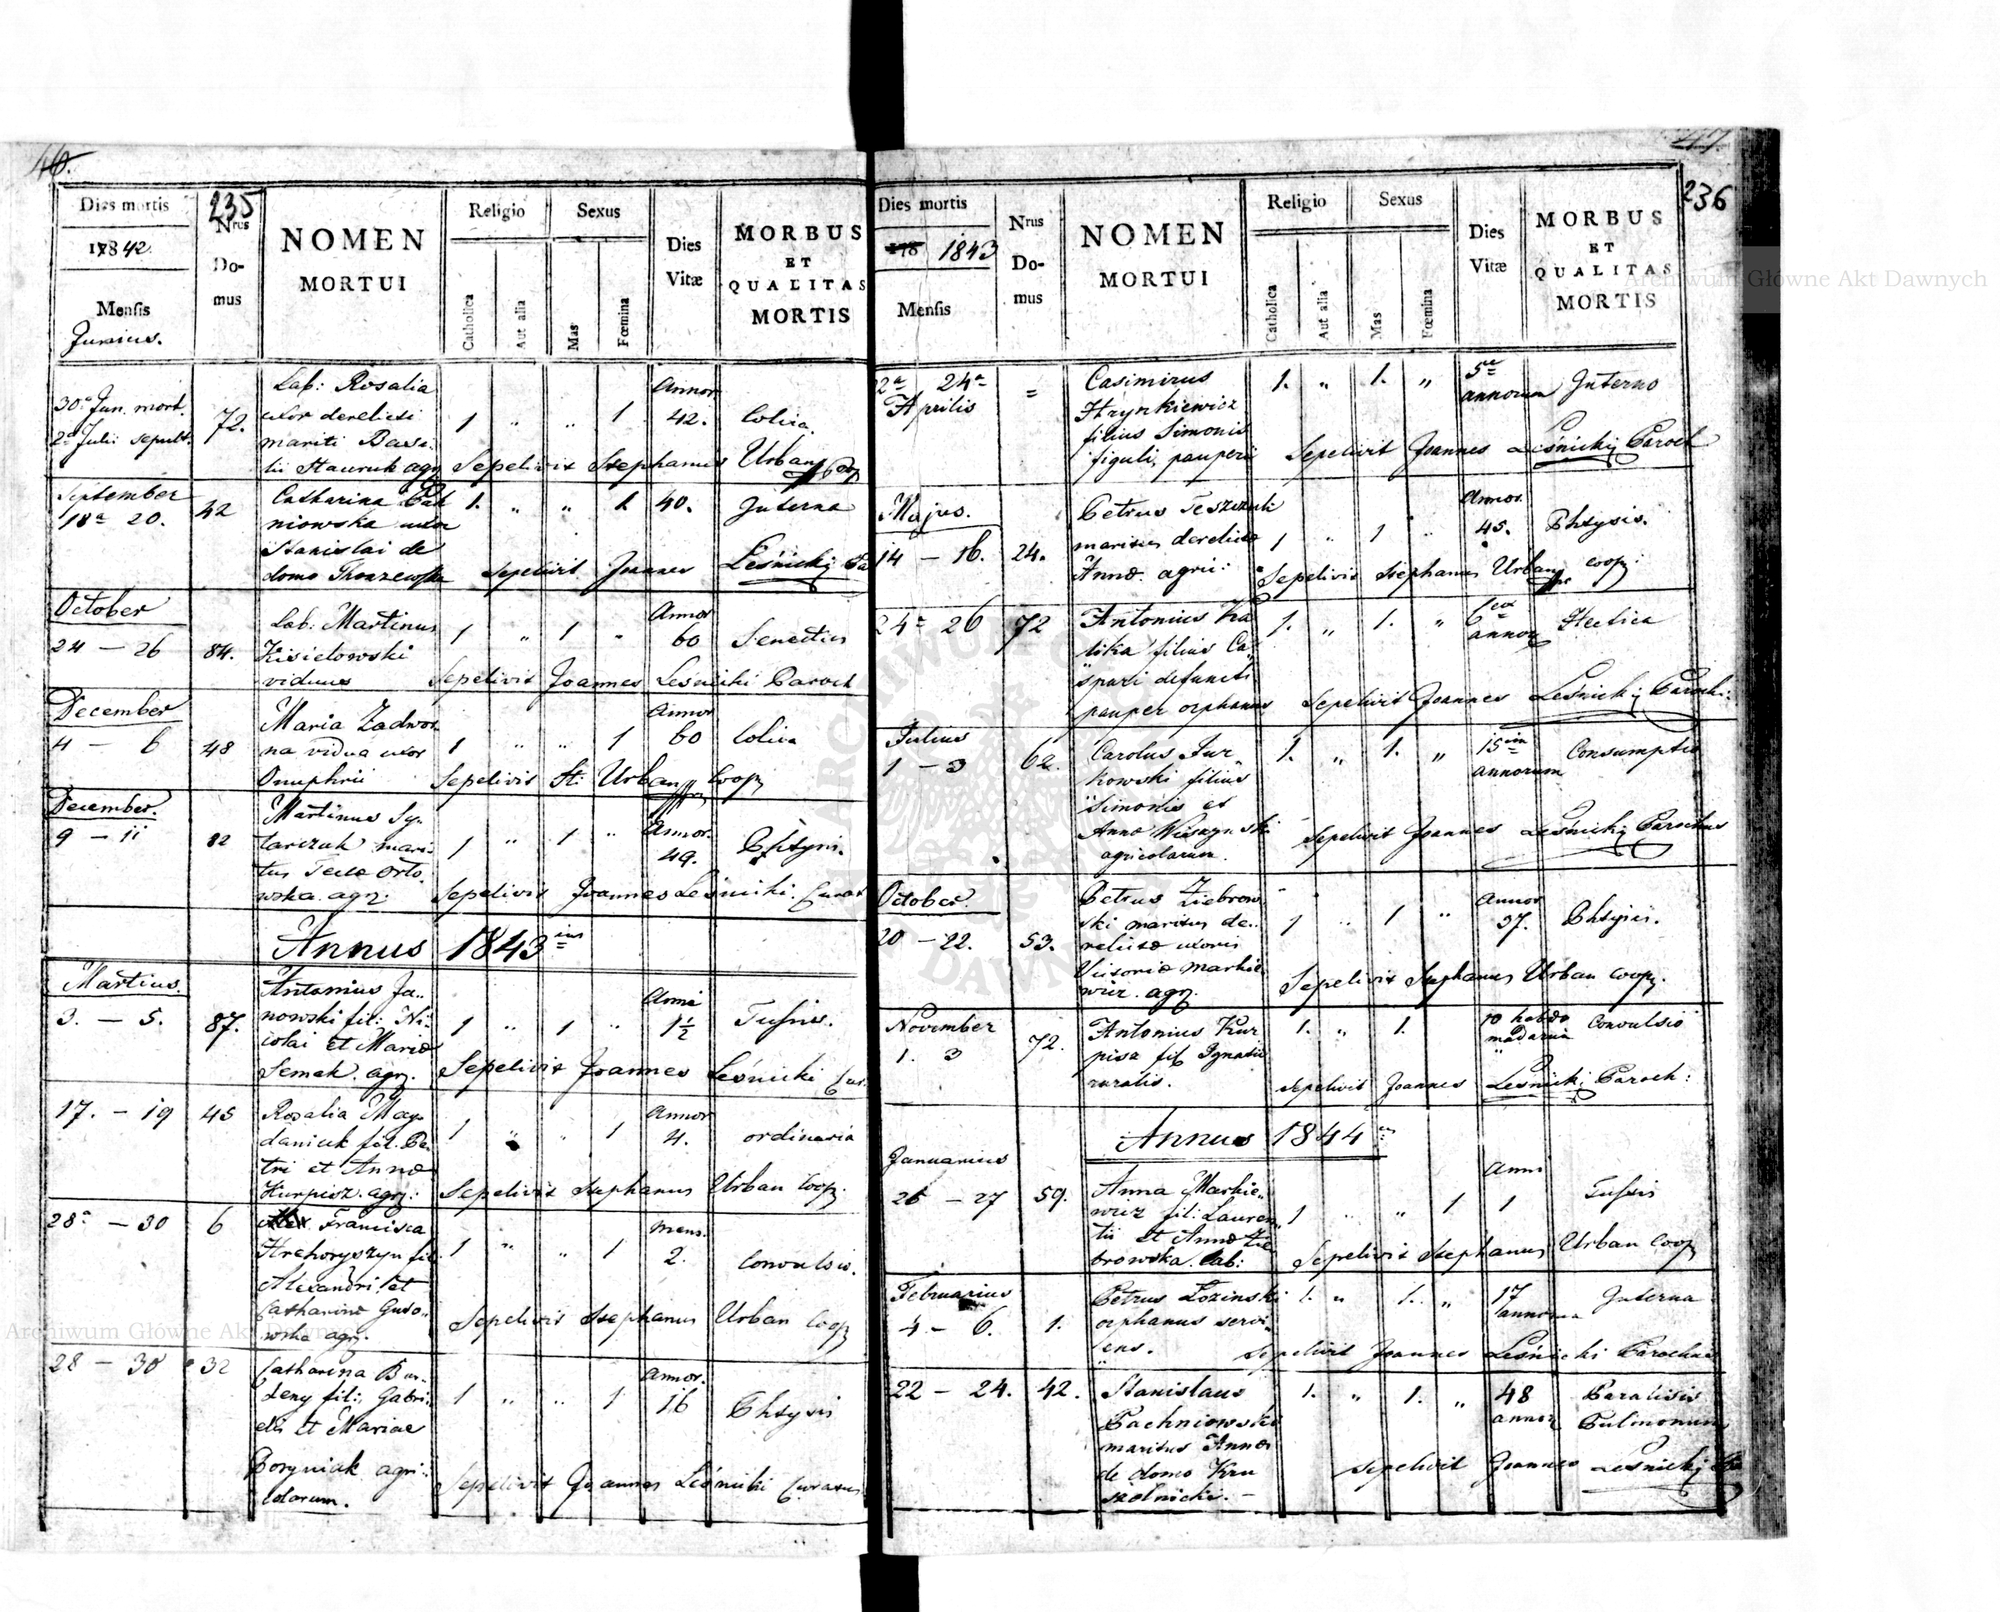 46.
235
Dies mortis
1842.
Mensis
Junius.
Nrus
Do-
mus
NOMEN
MORTUI
Religio
Catholica
Aut alia
Sexus
Mas
Fœmina
Dies
Vitæ
MORBUS
ET
QUALITAS
MORTIS
30a Jun. mort.
2a Julii sepult.
72.
Lab: Rosalia
uxor derelicti
mariti Basi-
lii Hawruk agr.
1 " " 1
Annor
42.
Colica.
Sepelivit Stephanus Urban Coop
September
18a 20.
42
Catharina Pah
niowska uxor
Stanislai de
domo
1. " " 1 40. Interna
Sepelivit Joannes Leśnicki Pa
October
24 – 26
84.
Lab: Martinus
Kisielowski
viduus
1 " 1 "
Annor
60
Senectus
Sepelivit Joannes Leśnicki Paroch
December
4 – 6
48
Maria Zadwor
na vidua uxor
Onuphrii
1 " " 1
Annor
60
Colica
Sepelivit St: Urban Coop
December.
9 – 11
82
Martinus Sy-
tarczuk mari-
tus Teclæ Orlo-
wska. agr.
1 " 1 "
Annor.
49.
Phtysis.
Sepelivit Joannes Leśnicki. Curat
Annus 1843 ius
Martius.
3. – 5.
87.
Antonius Ja-
nowski fil: Ni-
colai et Mariæ
Semak. agr.
1 " 1 "
Anni
1½
Tussis.
Sepelivit Joannes Leśnicki Cur.
17. – 19
45
Rosalia May-
daniuk fil: Pe-
tri et Annæ
Kurpisz. agr:
1 " " 1
Annor
4.
ordinaria
Sepelivit Stephanus Urban Coop.
28a – 30
6
Francisca
Hrehoryszyn fil
Alexandri et
Catharinæ Guto-
wska agr.
1 " " 1
Mens.
2.
Convulsis.
Sepelivit Stephanus Urban Coop
28 – 30
32
Catharina Bur-
deny fil: Gabri-
elis et Mariae
Boryniak agri-
colarum.
1 " " 1
Annor.
16
Phtysis
Sepelivit Joannes Leśnicki Curatus
236
Dies mortis
178 1843
Mensis
Nrus
Do-
mus
NOMEN
MORTUI
Religio
Catholica
Aut alia
Sexus
Mas
Fœmina
Dies
Vitæ
MORBUS
ET
QUALITAS
MORTIS
22a 24a
Aprilis
=
Casimirus
Hrynkiewicz
filius Simonis
figuli, pauperis
1. " 1. "
5
annorum
Interno
Sepelivit Joannes Leśnicki Paroch
Majus.
14 – 16.
24.
Petrus
maritus derelictæ
Annæ. agric:
1 " 1 "
Annor.
45.
Phtysis.
Sepelivit Stephanus Urban coop:
24a 26
72
Antonius Ka
lika filius Ca-
spari defuncti
pauper orphanus
1. " 1. "
6
annor
Hectica
Sepelivit Joannes Leśnicki Paroch:
Julius
1 – 3
62.
Carolus Jur-
kowski filius
Simonis et
Annæ Wiszynski
agricolarum.
1. " 1. "
15
annorum
Consumptio
Sepelivit Joannes Leśnicki Parochus
October.
20 – 22.
53.
Petrus Ziebrow
ski maritus de-
relictæ uxoris
Victoriæ Markie
wicz. agr.
1 " 1 "
Annor
37.
Phtysis.
Sepelivit Stephanus Urban Coop.
November
1. 3
72.
Antonius Kur
pisa fil Ignatii
ruralis.
1. " 1.
10 hebdo
madarum
Convulsio
Sepelivit Joannes Leśnicki Paroch:
Annus 1844
Januarius
26 – 27
59.
Anna Markie-
wicz fil: Lauren-
tii et Annæ Zie
browska. Lab:
1 " " 1
Anni
1
Tussis
Sepelivit Stephanus Urban Coop
Februarius
4 – 6.
1.
Petrus Łozinski
orphanus servi-
ens.
1. " 1. "
17
annorum
Interna
Sepelivit Joannes Leśnicki Parochus
22 – 24.
42.
Stanislaus
Pachniowski
maritus Annæ
de domo Kru
szolnicki. –
1. " 1. "
48
annor
Paralisis
Pulmonum
Sepelivit Joannes Leśnicki Pa
Archiwum Główne Akt Dawnych
Archiwum Główne Akt Dawnych